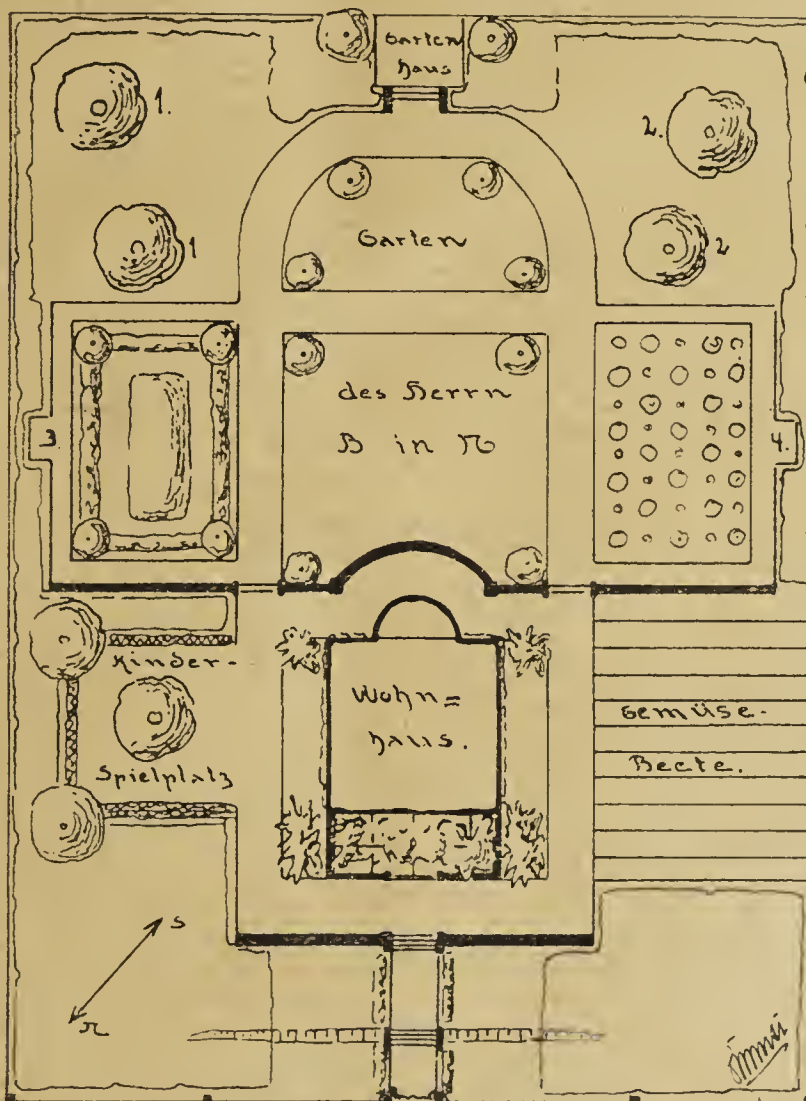 Garten
haus
1.
2.
1
2
Garten
des Herrn
B in N
3
4.
Kinder-
Spielplatz
Wohn=
haus.
Gemüse-
Beete.
S
N